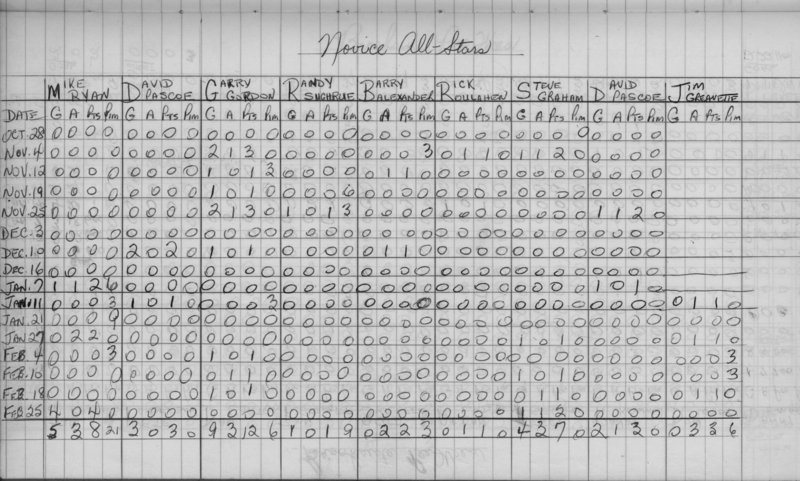 Novice All-Stars
MIKE DAVID GARRY RANDY BARRY RICK STEVE DAVID JIM
RYAN PASCOE GORDON SUGHRUE ALEXANDER ROULAHEN GRAHAM PASCOE GREAVETTE
DATE G A Pts Pim G A Pts Pim G A Pts Pim G A Pts Pim G A Pts Pim G A Pts Pim G A Pts Pim G A Pts Pim G A Pts Pim
OCT.28 0 0 0 0 0 0 0 0 0 0 0 0 0 0 0 0 0 0 0 0 0 0 0 0 0 0 0 0 0 0 0 0
NOV.4 0 0 0 0 0 0 0 0 2 1 3 0 0 0 0 0 0 0 0 3 0 1 1 0 1 1 2 0 0 0 0 0
NOV.12 0 0 0 0 0 0 0 0 1 0 1 3 0 0 0 0 0 1 1 0 0 0 0 0 0 0 0 0 0 0 0 0
NOV.19 0 0 0 0 0 0 0 0 1 0 1 0 0 0 0 6 0 0 0 0 0 0 0 0 0 0 0 0 0 0 0 0
NOV.25 0 0 0 0 0 0 0 0 2 1 3 0 1 0 1 3 0 0 0 0 0 0 0 0 0 0 0 0 1 1 2 0
DEC.3 0 0 0 0 0 0 0 0 0 0 0 0 0 0 0 0 0 0 0 0 0 0 0 0 0 0 0 0 0 0 0 0
DEC.10 0 0 0 0 2 0 2 0 1 0 1 0 0 0 0 0 0 1 1 0 0 0 0 0 0 0 0 0 0 0 0 0
DEC.16 0 0 0 0 0 0 0 0 0 0 0 0 0 0 0 0 0 0 0 0 0 0 0 0 0 0 0 0 0 0 0 0
JAN.7 1 1 2 6 0 0 0 0 0 0 0 0 0 0 0 0 0 0 0 0 0 0 0 0 0 0 0 0 1 0 1 0
JAN.11 0 0 0 3 1 0 1 0 0 0 0 3 0 0 0 0 0 0 0 0 0 0 0 0 0 0 0 0 0 0 0 0 0 1 1 0
JAN.21 0 0 0 9 0 0 0 0 0 0 0 0 0 0 0 0 0 0 0 0 0 0 0 0 0 0 0 0 0 0 0 0 0 0 0 0
JAN.27 0 2 2 0 0 0 0 0 0 0 0 0 0 0 0 0 0 0 0 0 0 0 0 0 1 0 1 0 0 0 0 0 0 1 1 0
FEB.4 0 0 0 3 0 0 0 0 1 0 1 0 0 0 0 0 0 0 0 0 0 0 0 0 0 0 0 0 0 0 0 0 0 0 0 3
FEB.10 0 0 0 0 0 0 0 0 0 1 1 0 0 0 0 0 0 0 0 0 0 0 0 0 1 0 1 0 0 0 0 0 0 0 0 3
FEB.18 0 0 0 0 0 0 0 0 1 0 1 0 0 0 0 0 0 0 0 0 0 0 0 0 0 1 1 0 0 0 0 0 0 1 1 0
FEB.25 4 0 4 0 0 0 0 0 0 0 0 0 0 0 0 0 0 0 0 0 0 0 0 0 1 1 2 0 0 0 0 0 0 0 0 0
5 3 8 21 3 0 3 0 9 3 12 6 1 0 1 9 0 2 2 3 0 1 1 0 4 3 7 0 2 1 3 0 0 3 3 6